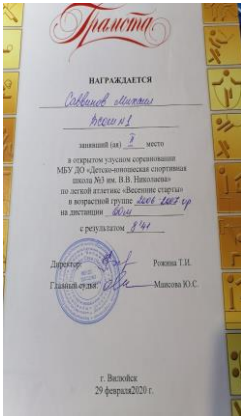 Грамота
НАГРАЖДАЕТСЯ
Саввинов Михаил
занявший (ая) II место
в открытом улусном соревновании
МБУ ДО «Детско-юношеская спортивная
школа №3 им. В.В. Николаева»
по легкой атлетике «Весенние старты»
в возрастной группе 2006-2007 гр
на дистанции 60м
с результатом 8'41
Директор: Рожина Т.И.
Главный судья: Маисова Ю.С.
г. Вилюйск
29 февраля2020 г.